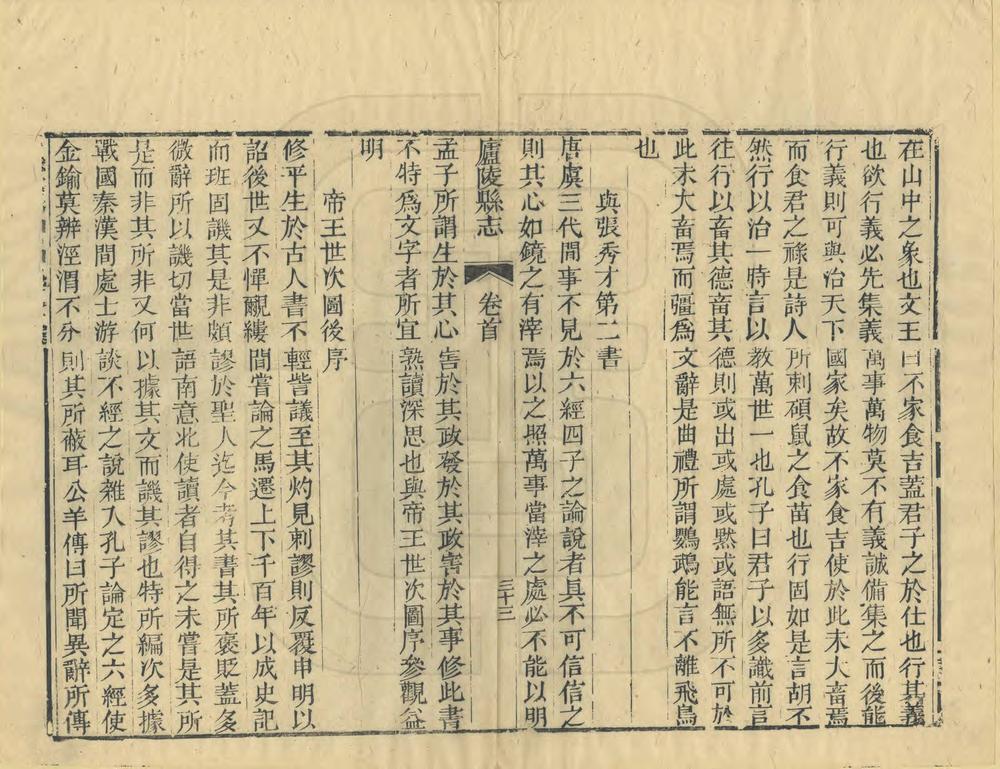 在山中之象也文王曰不家食吉蓋君子之於仕也行其義
也欲行義必先集義萬事萬物莫不有義誠備集之而後能
行義則可與治天下國家矣故不家食吉使於此未大畜焉
而食君之祿是詩人所刺碩鼠之食苗也行固如是言胡不
然行以治一時言以教萬世一也孔子曰君子以多識前言
往行以畜其德畜其德則或出或處或默或語無所不可於
此未大畜焉而彊爲文辭是曲禮所謂鸚鵡能言不離飛鳥
也
與張秀才第二書
唐虞三代間事不見於六經四子之論說者具不可信信之
則其心如鏡之有滓焉以之照萬事當滓之處必不能以明
廬陵縣志
卷首
三十三
孟子所謂生於其心害於其政發於其政害於其事修此書
不特爲文字者所宜熟讀深思也與帝王世次圖序參觀益
明
帝王世次圖後序
修平生於古人書不輕訾議至其灼見刺謬則反覆申明以
詔後世又不憚覼縷間嘗論之馬遷上下千百年以成史記
而班固譏其是非頗謬於聖人迄今考其書其所褒貶蓋多
微辭所以譏切當世語南意北使讀者自得之未嘗是其所
是而非其所非又何以據其文而譏其謬也特所編次多據
戰國秦漢間處士游談不經之說雜入孔子論定之六經使
金鍮莫辨涇渭不分則其所蔽耳公羊傳曰所聞異辭所傳